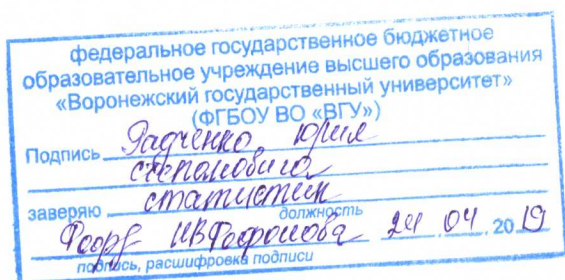 федеральное государственное бюджетное
образовательное учреждение высшего образования
«Воронежский государственный университет»
(ФГБОУ ВО «ВГУ»)
Подпись Радченко Юрия
Степановича
заверяю статистик
должность
И В Феофилова 24 04 . 20 19
подпись, расшифровка подписи